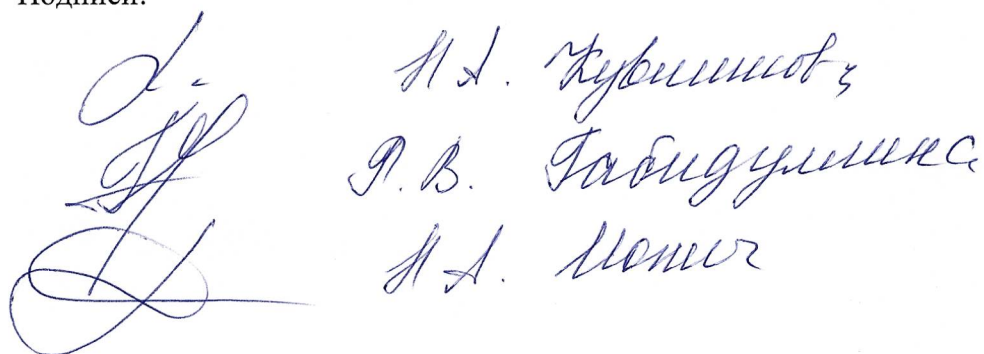 Подписи:
Н А. Кувшинова
Р. В. Габидуллина
Н А.